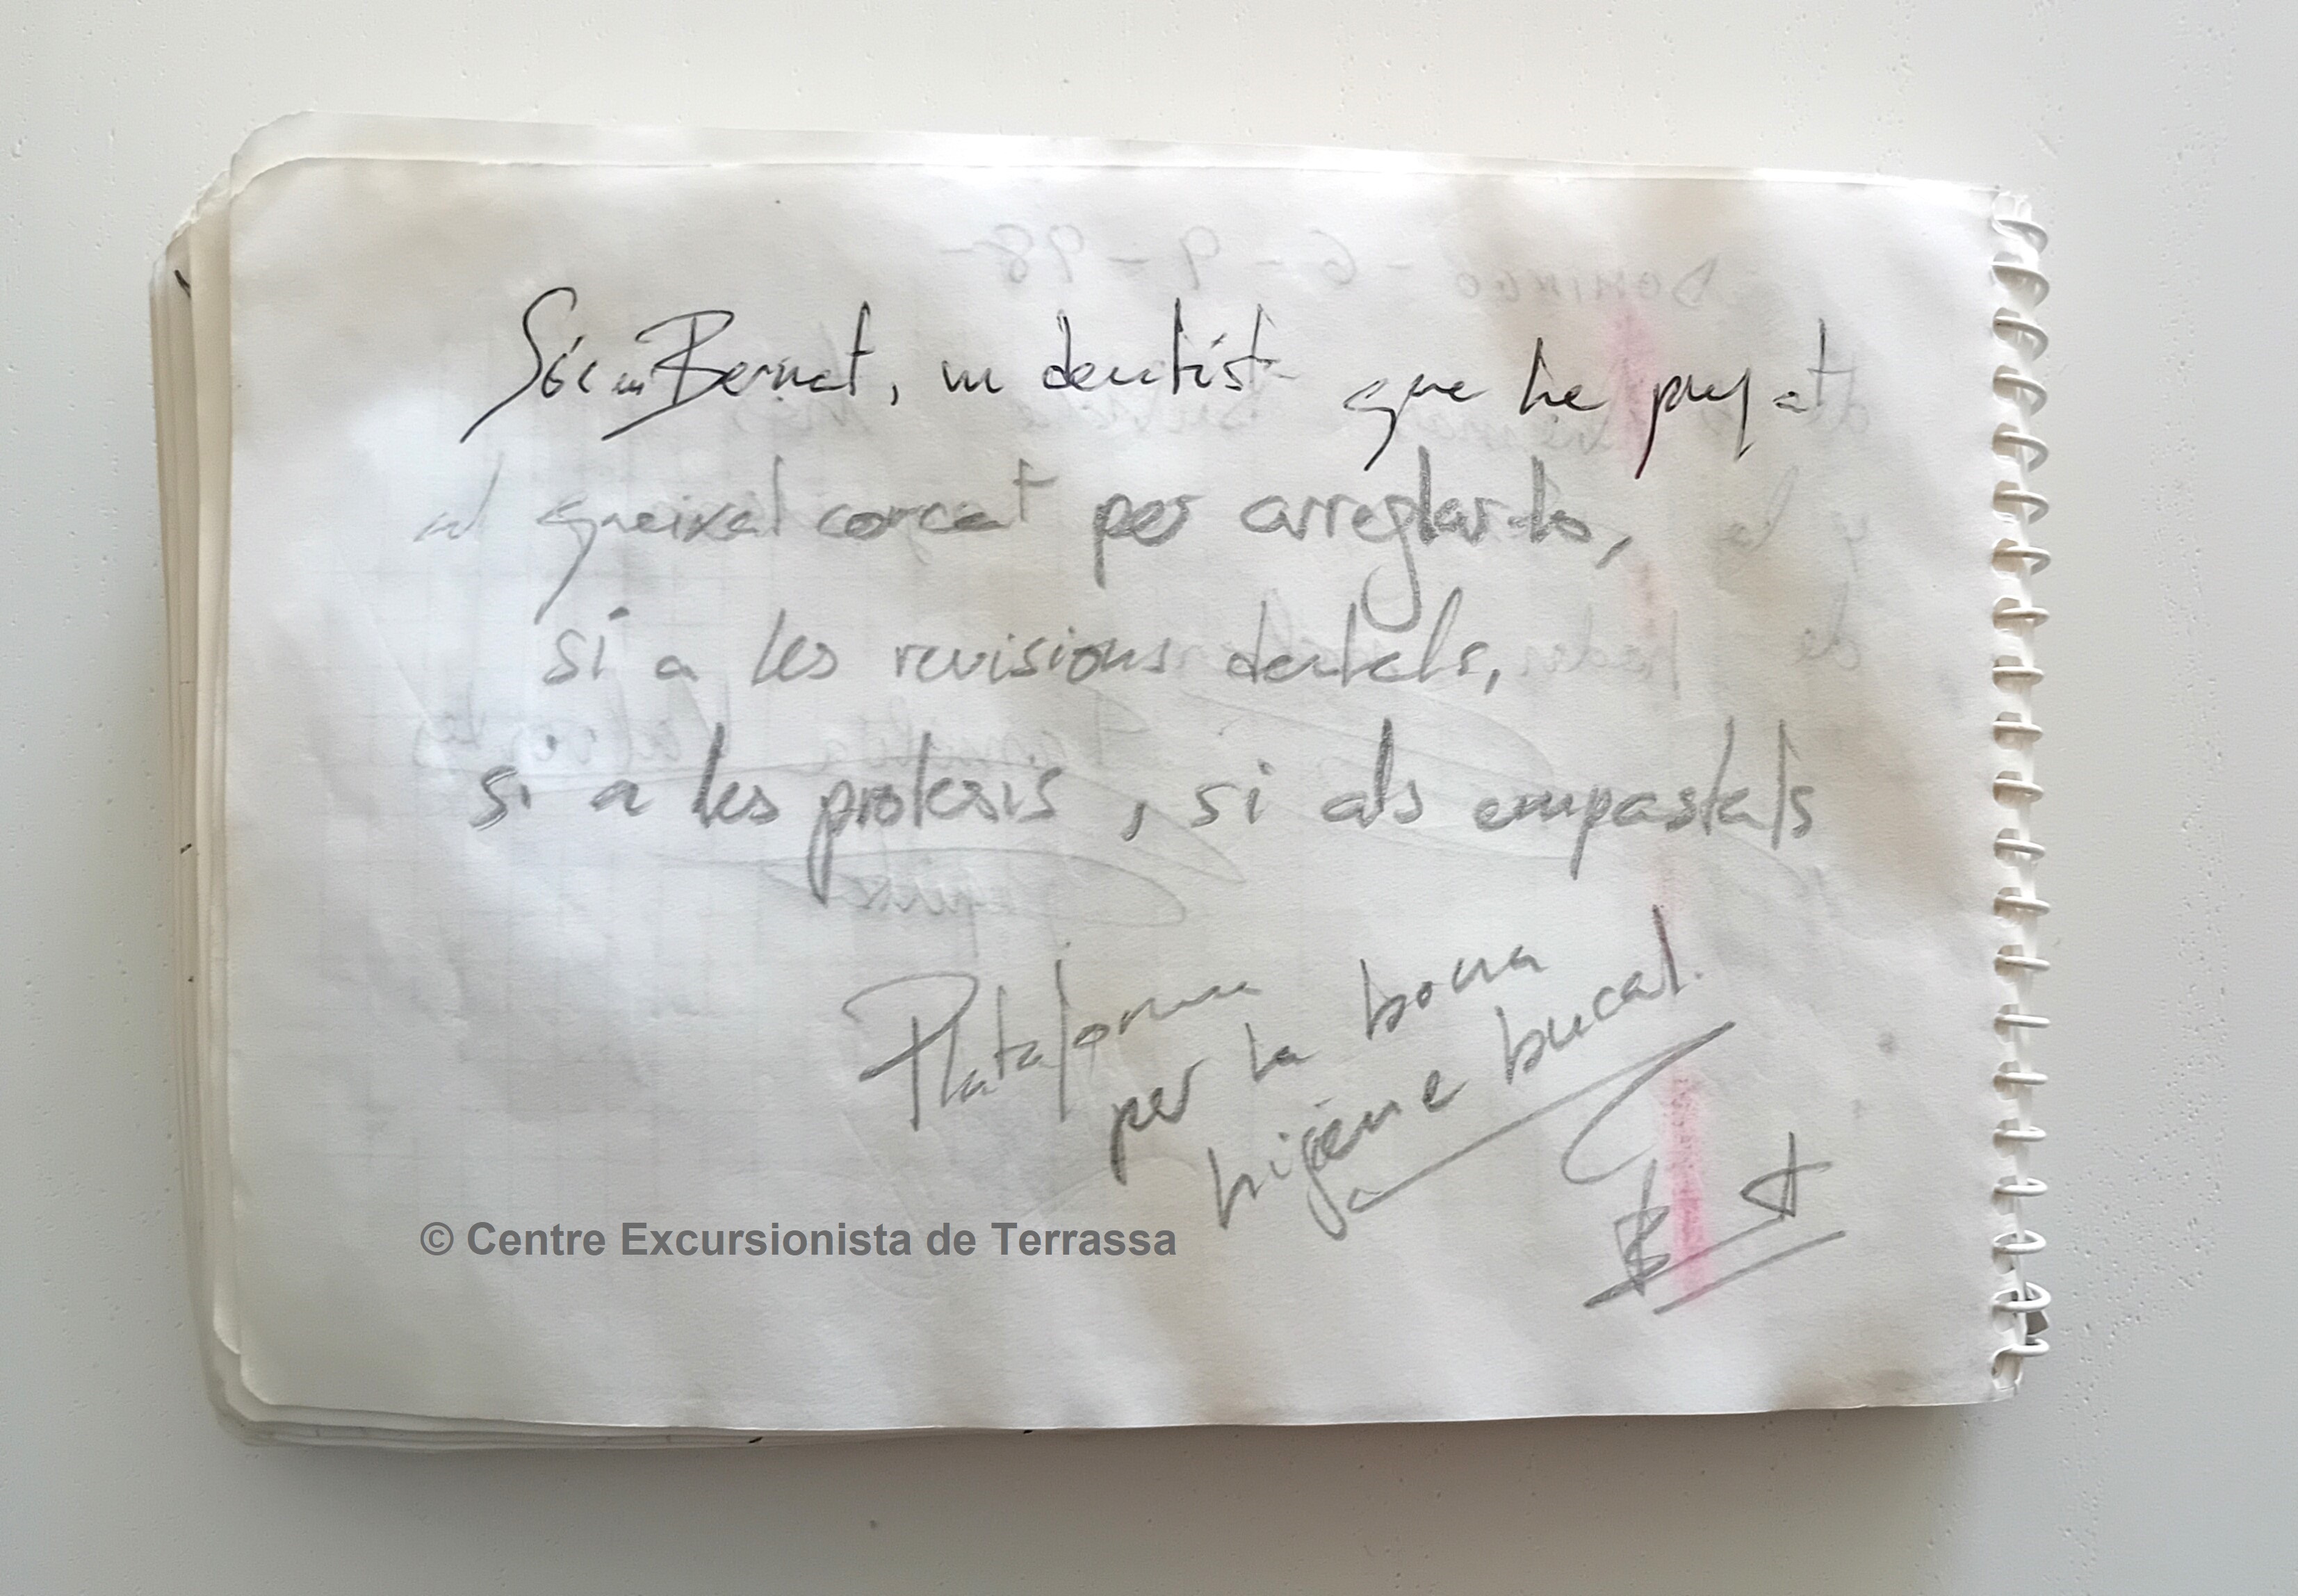 Sóc en Bernat, un dentista que he pujat
al queixal corcat per arreglar-lo,
sí a les revisions dentals,
si a les protesis, si als empastats
Plataforma
per la bona
higiene bucal.
© Centre Excursionista de Terrassa